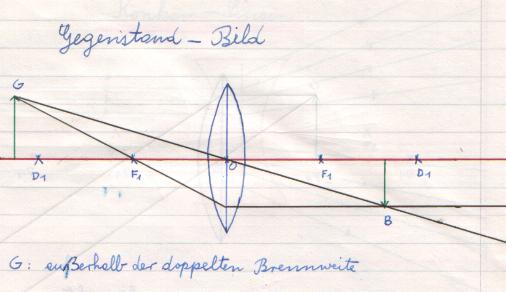 Gegenstand – Bild
G
D1 F1 O F1 D1
B
G: außerhalb der doppelten Brennweite